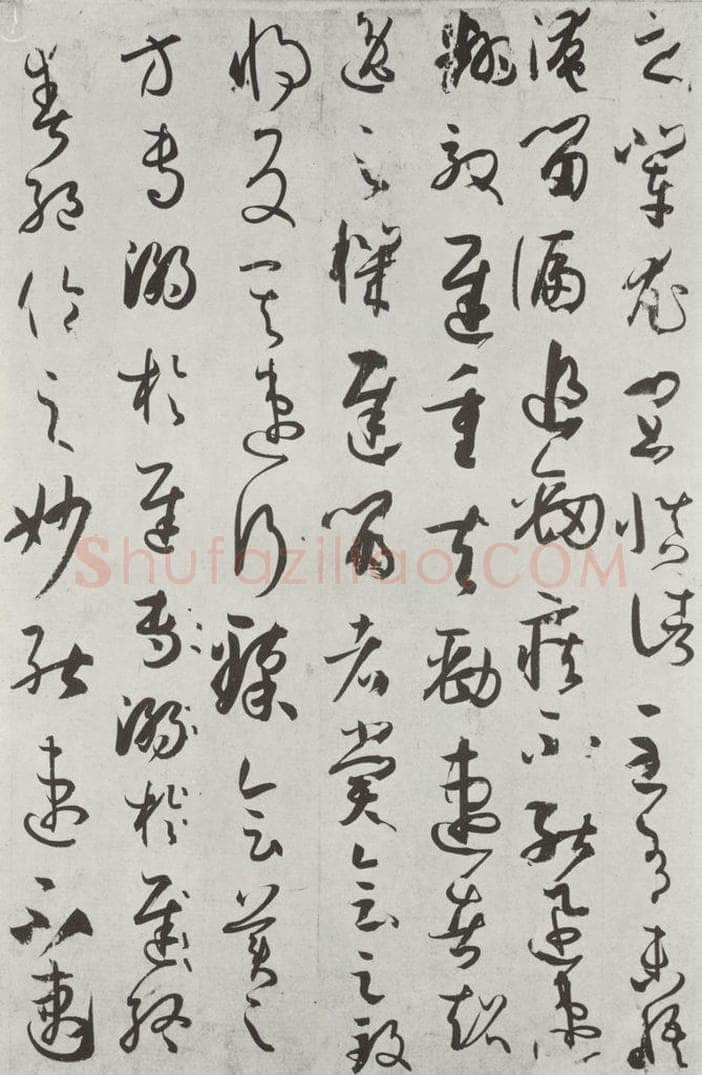 之輩尤宜慎諸至有未悟
淹留偏追勁疾不能迅速
翻效遲重夫勁速者超
逸之機遲留者賞會之致
將反其速行臻會美之
方專溺於遲專溺於遲終
爽絕倫之妙能速不速
Shufaziliao.COM